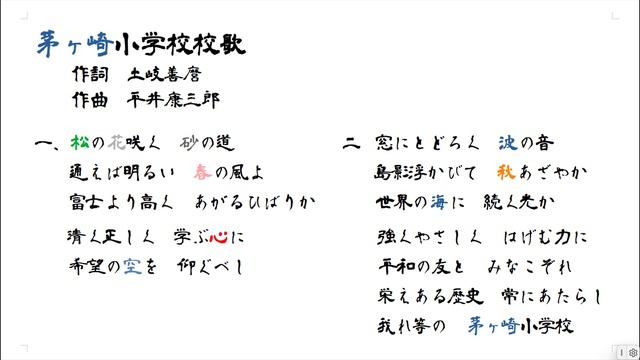 茅ヶ崎小学校校歌
作詞　土岐善麿
作曲　平井康三郎
一、松の花咲く　砂の道
通えば明るい　春の風よ
富士より高く　あがるひばりか
清く正しく　学ぶ心に
希望の空を　仰ぐべし
二　窓にとどろく　波の音
島影浮かびて　秋あざやか
世界の海に　続く光か
強くやさしく　はげむ力に
平和の友と　みなこぞれ
栄えある歴史　常にあたらし
我れ等の　茅ヶ崎小学校